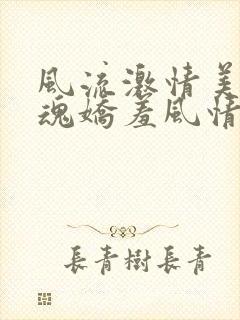 風流激情美
魂嬌羞風情
長青樹長青